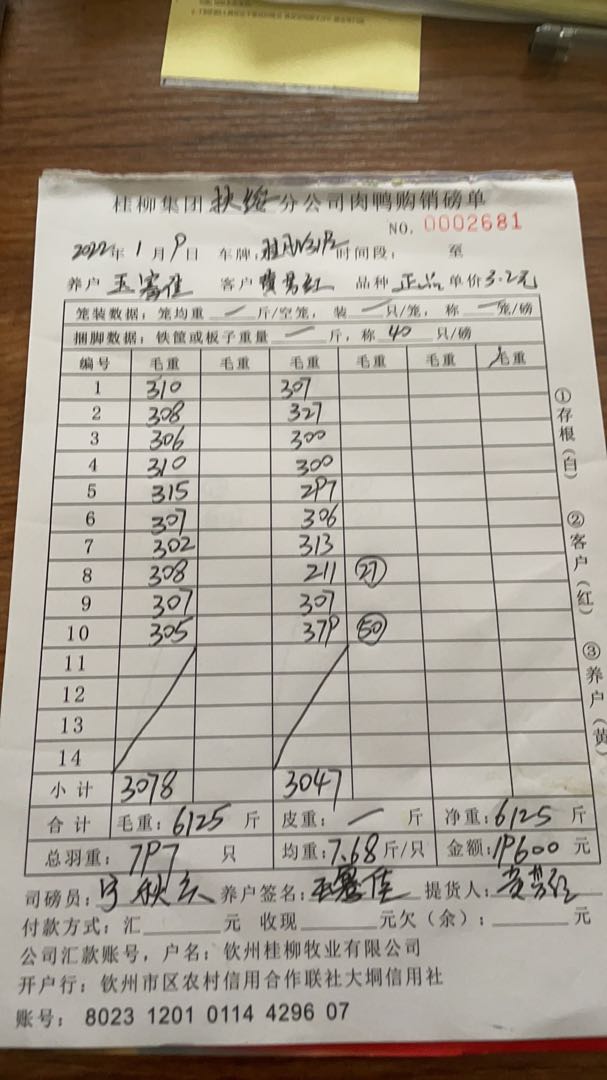 桂柳集团扶绥分公司肉鸭购销磅单
NO. 0002681
2022年1月9日 车牌: 时间段: 至
养户 客户 品种 正品 单价3.2元
笼装数据: 笼均重 — 斤/空笼, 装 — 只/笼, 称 — 笼/磅
捆脚数据: 铁筐或板子重量 — 斤, 称 40 只/磅
编号 毛重 毛重 毛重 毛重 毛重 毛重
1 310 307
2 308 327
3 306 300
4 310 300
5 315 297
6 307 306
7 302 313
8 308 211 27
9 307 307
10 305 379 50
11
12
13
14
小计 3078 3047
合计 毛重: 6125 斤 皮重: — 斤 净重: 6125 斤
总羽重: 797 只 均重: 7.68斤/只 金额: 19600 元
司磅员: 养户签名: 提货人:
付款方式: 汇 元 收现 元欠(余): 元
公司汇款账号, 户名: 钦州桂柳牧业有限公司
开户行: 钦州市区农村信用合作联社大垌信用社
账号: 8023 1201 0114 4296 07
①存根(白) ②客户(红) ③养户(黄)